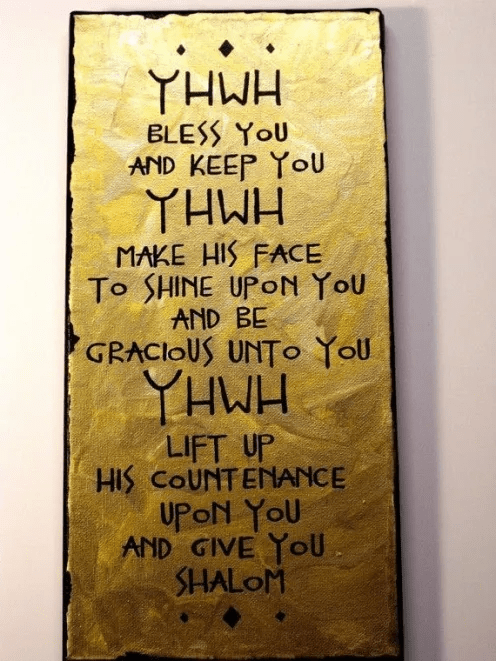 YHWH
BLESS YoU
AND KEEP YoU
YHWH
MAKE HIS FACE
To SHINE UPoN YoU
AND BE
GRACIoUS UNTo YoU
YHWH
LIFT UP
HIS CoUNTENANCE
UPoN YoU
AND GIVE YoU
SHALoM